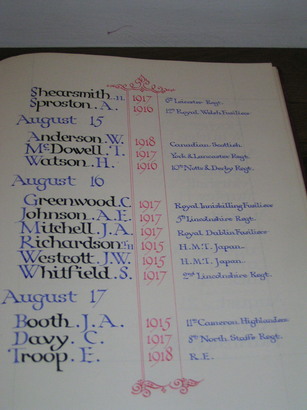 Shearsmith. H. 1917 6th Leinster Regt.
Sproston. A. 1916 Royal Welsh Fusiliers
August 15
Anderson. W. 1918 Canadian Scottish
McDowell. T. 1917 York & Lancaster Regt.
Watson. H. 1916 10th Notts & Derby Regt.
August 16
Greenwood. C. 1917 Royal Inniskilling Fusiliers
Johnson. A. E. 1917 5th Lincolnshire Regt.
Mitchell. J. A. 1917 Royal Dublin Fusiliers
Richardson 1915 H.M.T. Japan.
Westcott. J. W. 1915 H.M.T. Japan.
Whitfield. S. 1917 2nd Lincolnshire Regt.
August 17
Booth. J. A. 1915 11th Cameron Highlanders
Davy. C. 1917 8th North Staffs Regt.
Troop. E. 1918 R.E.